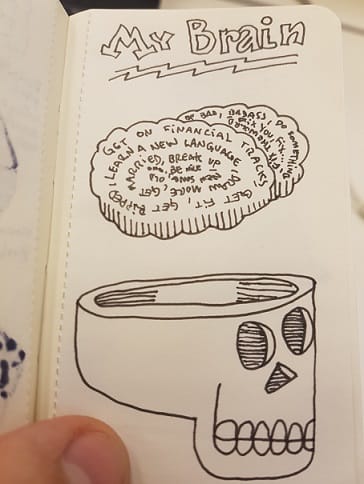 My Brain
GET ON FINANCIAL TRACKS,
GET FIT, GET RIPPED,
LEARN A NEW LANGUAGE,
DRAW MORE, GET
MARRIED, BREAK UP
BE BAD, BADASS, DO SOMETHING,